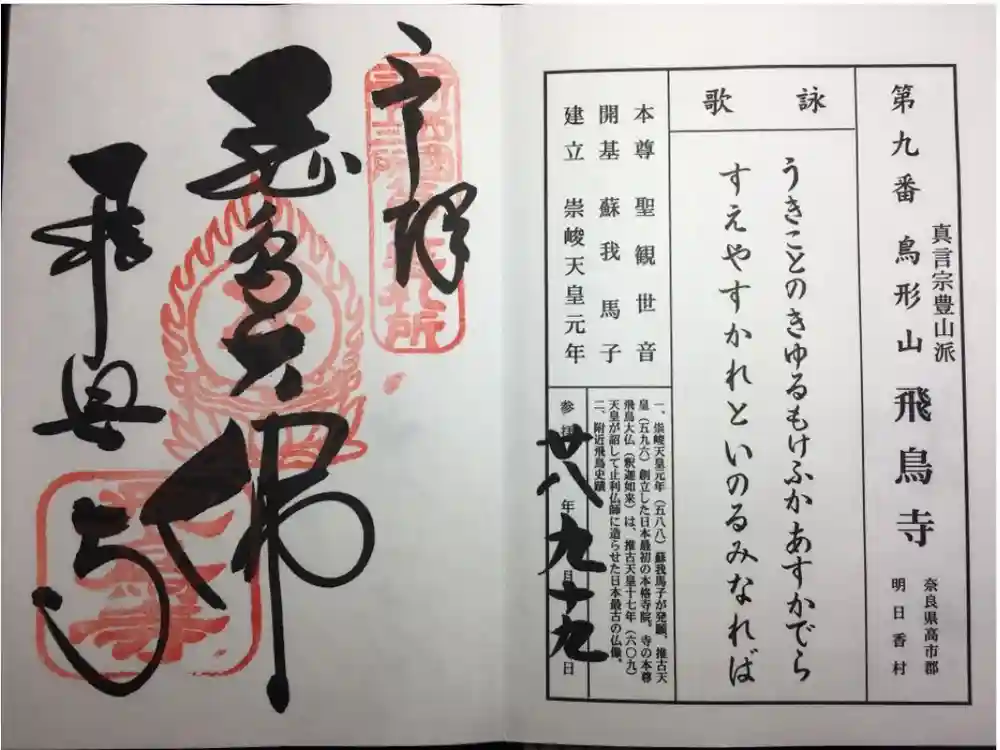 第九番 鳥形山 飛鳥寺
真言宗豊山派
奈良県高市郡
明日香村
詠歌
うきことのきゆるもけふかあすかでら
すえやすかれといのるみなれば
本尊 聖観世音
開基 蘇我馬子
建立 崇峻天皇元年
一、崇峻天皇元年(五八八)蘇我馬子が発願、推古天
皇(五九六)創立した日本最初の本格寺院。寺の本尊
飛鳥大仏(釈迦如来)は、推古天皇十七年(六〇九)
天皇が詔して止利仏師に造らせた日本最古の仏像。
二、附近飛鳥史蹟
参拝 廿八年九月十九日
奉拝
飛鳥大佛
飛鳥寺